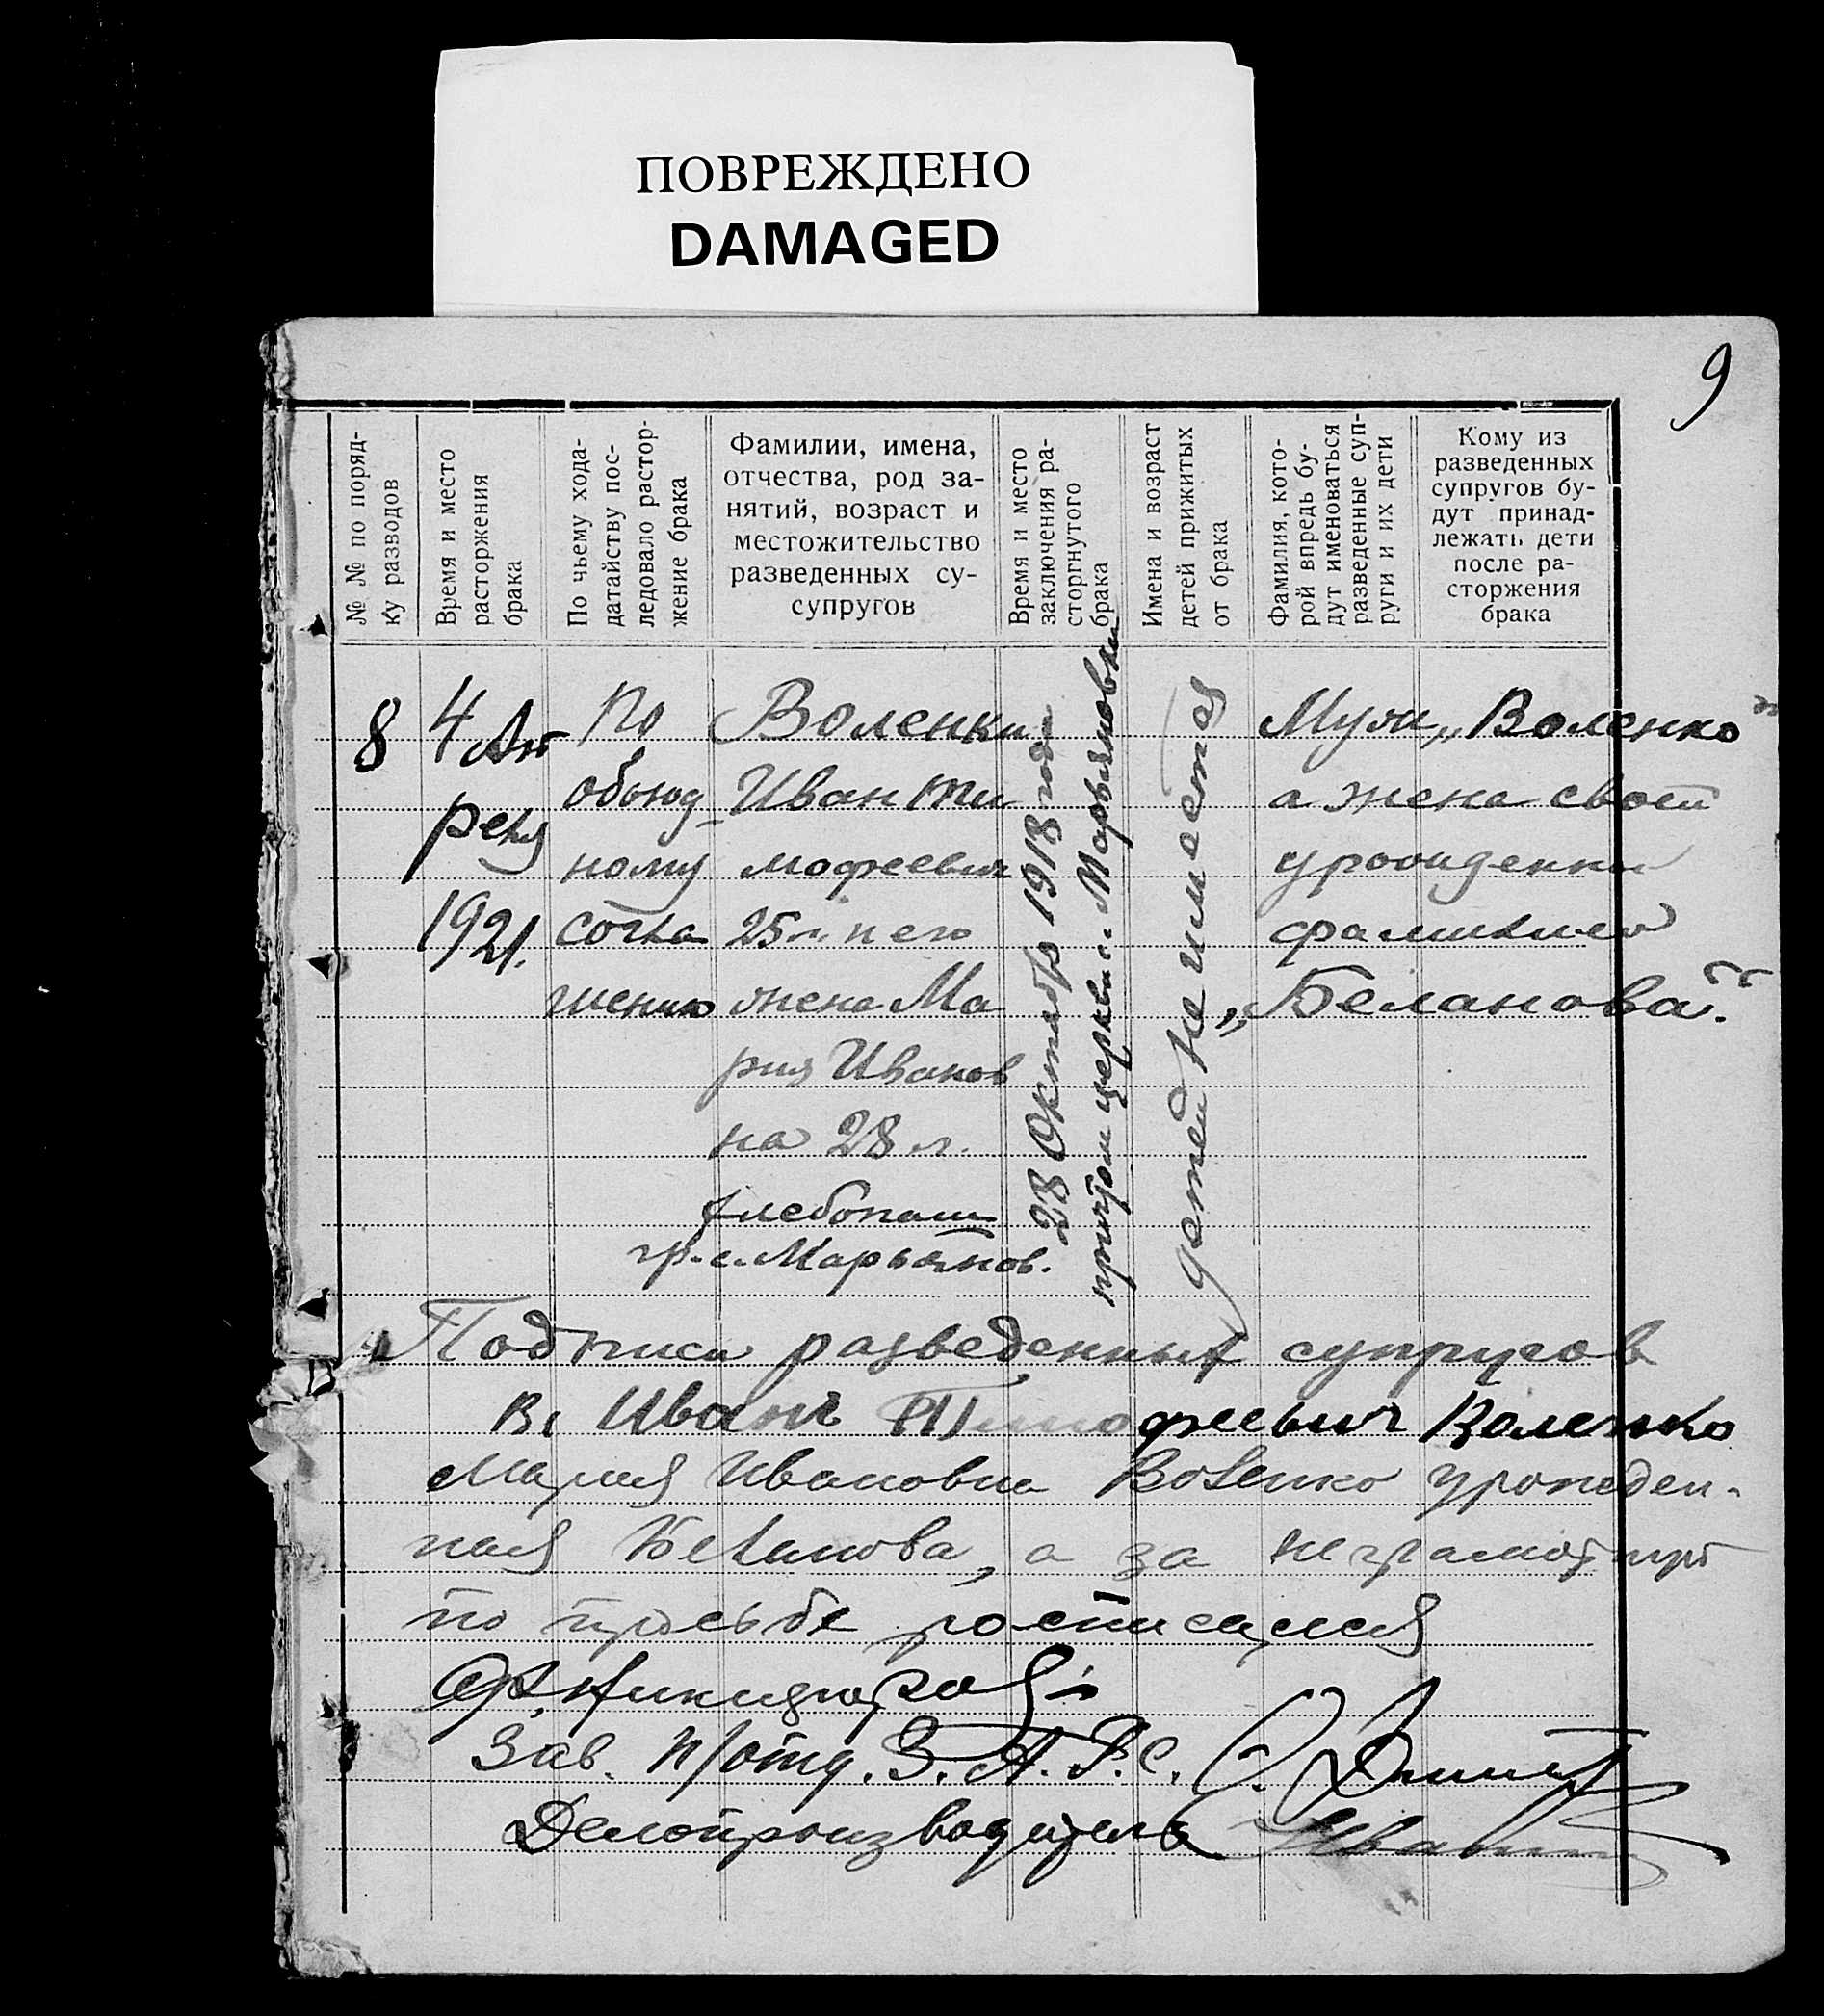 ПОВРЕЖДЕНО
DAMAGED
9
№ № по поряд-
ку разводов
Время и место
расторжения
брака
По чьему хода-
датайству пос-
ледовало растор-
жение брака
Фамилии, имена,
отчества, род за-
нятий, возраст и
местожительство
разведенных су-
супругов
Время и место
заключения ра-
сторгнутого
брака
Имена и возраст
детей прижитых
от брака
Фамилия, кото-
рой впредь бу-
дут именоваться
разведенные суп-
руги и их дети
Кому из
разведенных
супругов бу-
дут принад-
лежать дети
после ра-
сторжения
брака
8
4 Ап
реля
1921.
По
обоюд-
ному
согла
шению
Воленки
Иван Ти
мофеевич
25 л. и его
жена Ма
рия Иванов
на 28 л.
хлебопаш
гр. с. Марьянов.
28 Октября 1918 года
причтом церкви с. Марьяновки
детей не имеется
Муж „Воленко"
а жена своей
урожденной
фамилией
„Беланова".
Подписи разведенных супругов
Иванъ Тимофеевич Воленко
Мария Ивановна Воленко урожден-
ная Беланова, а за неграмотную
по просьбе росписался
Зав. п/отд. З. А. Г. С.
Делопроизводитель